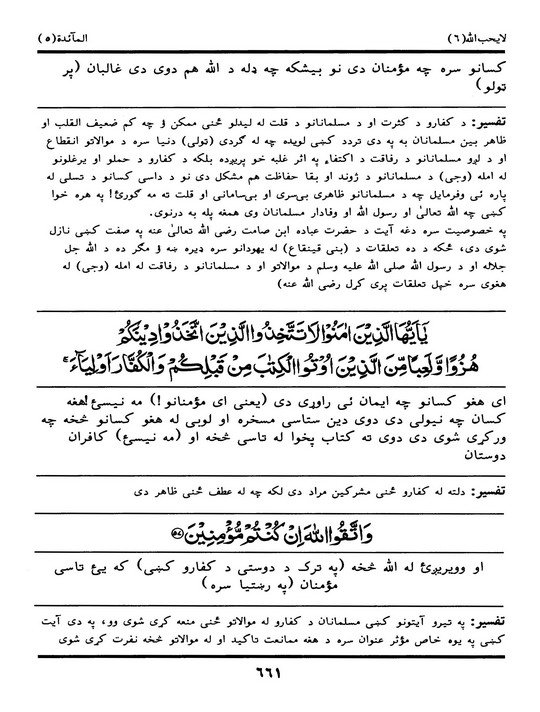 لايحب الله (٦) المآئدة (٥)
کسانو سره چه مؤمنان دی نو بیشکه چه ډله د الله هم دوی دی غالبان (پر
ټولو)
تفسیر: د کفارو د کثرت او د مسلمانانو د قلت له لیدلو ځنی ممکن ؤ چه کم ضعیف القلب او
ظاهر بین مسلمانان په په دی تردد کښی لویده چه له گردی (ټولی) دنیا سره د موالاتو انقطاع
او د لږو مسلمانانو د رفاقت د اکتفاء په اثر غلبه خو پریږده بلکه د کفارو د حملو او یرغلونو
له امله (وجی) د مسلمانانو د ژوند او بقا حفاظت هم مشکل دی نو د داسی کسانو د تسلی له
پاره ئی وفرمایل چه د مسلمانانو ظاهری بی‌سری او بی‌سامانی او قلت ته مه گورئ! په هره خوا
کښی چه الله تعالیٰ او رسول الله او وفادار مسلمانان وی همغه پله به درنوی.
په خصوصیت سره دغه آیت د حضرت عباده ابن صامت رضی الله تعالیٰ عنه په صفت کښی نازل
شوی دی، ځکه د ده تعلقات د (بنی قینقاع) له یهودانو سره ډیره ښه ؤ مگر ده د الله جل
جلاله او د رسول الله صلی الله علیه وسلم د موالاتو او د مسلمانانو د رفاقت له امله (وجی) له
هغوی سره خپل تعلقات پری کړل رضی الله عنه)
يٰٓاَيُّهَا الَّذِيْنَ اٰمَنُوْا لَا تَتَّخِذُوا الَّذِيْنَ اتَّخَذُوْا دِيْنَكُمْ
هُزُوًا وَّلَعِبًا مِّنَ الَّذِيْنَ اُوْتُوا الْكِتٰبَ مِنْ قَبْلِكُمْ وَالْكُفَّارَ اَوْلِيَآءَ ۚ
ای هغو کسانو چه ایمان ئی راوړی دی (یعنی ای مؤمنانو!) مه نیسئ!هغه
کسان چه نیولی دی دوی دین ستاسی مسخره او لوبی له هغو کسانو څخه چه
ورکړی شوی دی دوی ته کتاب پخوا له تاسی څخه او (مه نیسئ) کافران
دوستان
تفسیر: دلته له کفارو ځنی مشرکین مراد دی لکه چه له عطف ځنی ظاهر دی
وَاتَّقُوا اللهَ اِنْ كُنْتُمْ مُّؤْمِنِيْنَ ﴿٥٧﴾
او وویریږئ له الله څخه (په ترک د دوستی د کفارو کښی) که یئ تاسی
مؤمنان (په رښتیا سره)
تفسیر: په تیرو آیتونو کښی مسلمانان د کفارو له موالاتو ځنی منعه کړی شوی وو، په دی آیت
کښی په یوه خاص مؤثر عنوان سره د هغه ممانعت تاکید او له موالاتو څخه نفرت کړی شوی
٦٦١